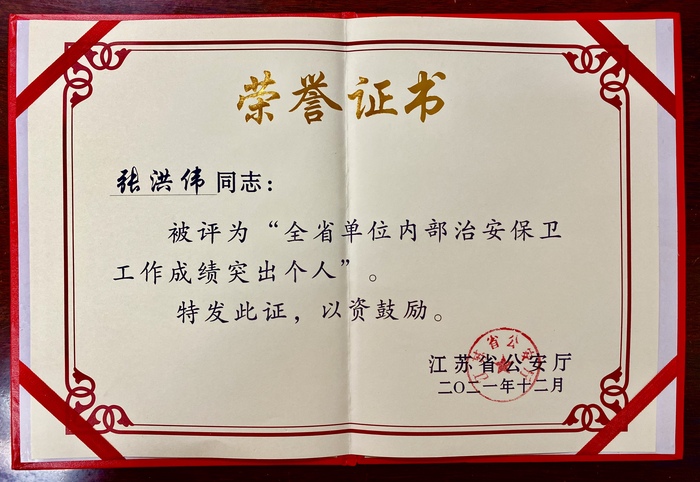 荣誉证书
张洪伟同志：
被评为“全省单位内部治安保卫
工作成绩突出个人”。
特发此证，以资鼓励。
江苏省公安厅
二〇二一年十二月
江苏省公安厅